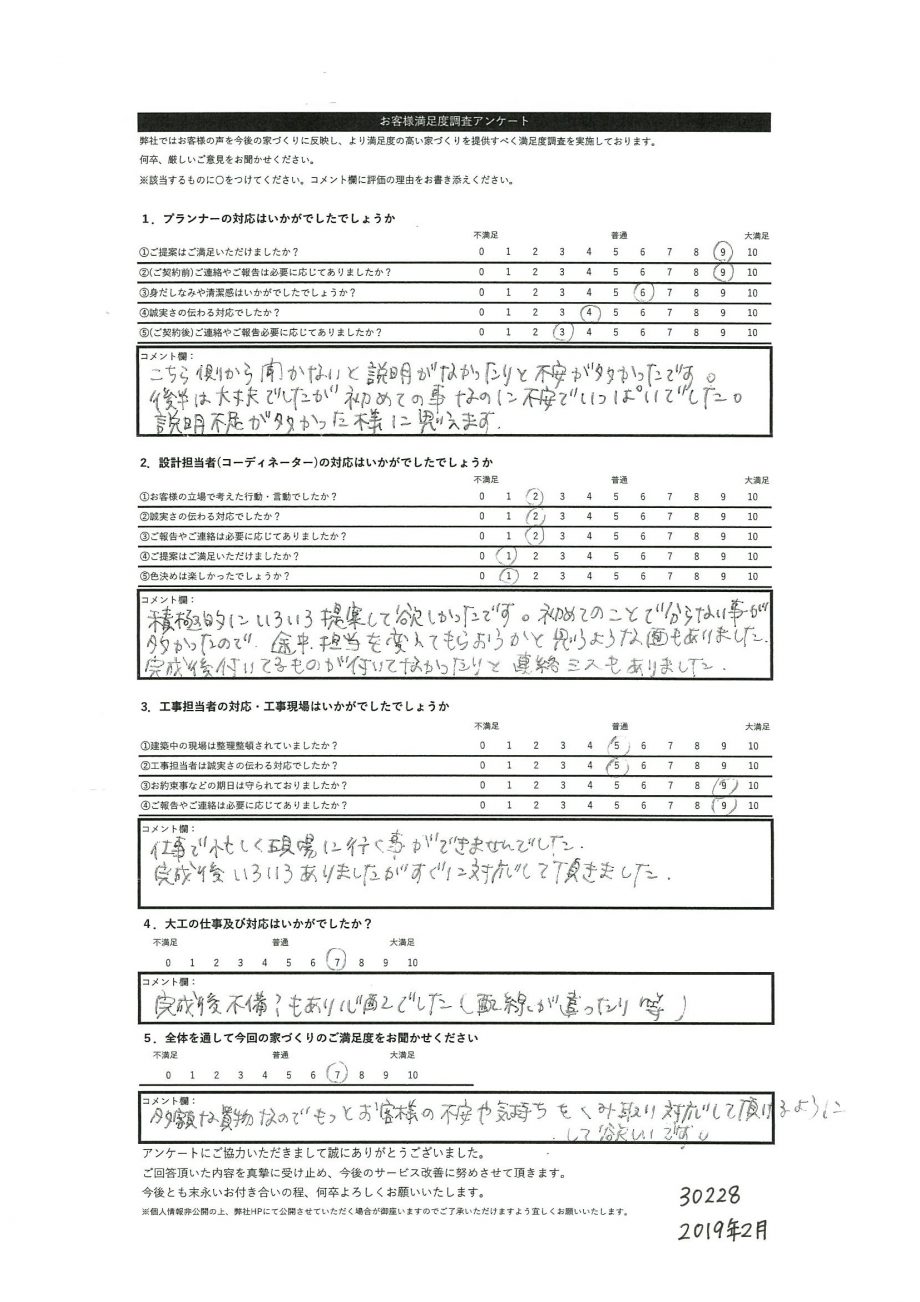 お客様満足度調査アンケート
弊社ではお客様の声を今後の家づくりに反映し、より満足度の高い家づくりを提供すべく満足度調査を実施しております。
何卒、厳しいご意見をお聞かせください。
※該当するものに〇をつけてください。コメント欄に評価の理由をお書き添えください。
1．プランナーの対応はいかがでしたでしょうか
不満足 普通 大満足
①ご提案はご満足いただけましたか？ 0 1 2 3 4 5 6 7 8 9 10
②(ご契約前)ご連絡やご報告は必要に応じてありましたか？ 0 1 2 3 4 5 6 7 8 9 10
③身だしなみや清潔感はいかがでしたでしょうか？ 0 1 2 3 4 5 6 7 8 9 10
④誠実さの伝わる対応でしたか？ 0 1 2 3 4 5 6 7 8 9 10
⑤(ご契約後)ご連絡やご報告必要に応じてありましたか？ 0 1 2 3 4 5 6 7 8 9 10
コメント欄：
こちら側から聞かないと説明がなかったりと不安が多かったです。
後半は大丈夫でしたが初めての事なのに不安でいっぱいでした。
説明不足が多かった様に思えます.
2．設計担当者(コーディネーター)の対応はいかがでしたでしょうか
不満足 普通 大満足
①お客様の立場で考えた行動・言動でしたか？ 0 1 2 3 4 5 6 7 8 9 10
②誠実さの伝わる対応でしたか？ 0 1 2 3 4 5 6 7 8 9 10
③ご報告やご連絡は必要に応じてありましたか？ 0 1 2 3 4 5 6 7 8 9 10
④ご提案はご満足いただけましたか？ 0 1 2 3 4 5 6 7 8 9 10
⑤色決めは楽しかったでしょうか？ 0 1 2 3 4 5 6 7 8 9 10
コメント欄：
積極的にいろいろ提案して欲しかったです。初めてのことで分らない事が
多かったので.途中.担当を変えてもらおうかと思うような面もありました.
完成後付いてるものが付いてなかったりと連絡ミスもありました.
3．工事担当者の対応・工事現場はいかがでしたでしょうか
不満足 普通 大満足
①建築中の現場は整理整頓されていましたか？ 0 1 2 3 4 5 6 7 8 9 10
②工事担当者は誠実さの伝わる対応でしたか？ 0 1 2 3 4 5 6 7 8 9 10
③お約束事などの期日は守られておりましたか？ 0 1 2 3 4 5 6 7 8 9 10
④ご報告やご連絡は必要に応じてありましたか？ 0 1 2 3 4 5 6 7 8 9 10
コメント欄：
仕事で忙しく現場に行く事ができませんでした.
完成後いろいろありましたがすぐに対応して頂きました.
4．大工の仕事及び対応はいかがでしたか？
不満足 普通 大満足
0 1 2 3 4 5 6 7 8 9 10
コメント欄：
完成後不備？もあり心配でした(配線が違ったり等)
5．全体を通して今回の家づくりのご満足度をお聞かせください
不満足 普通 大満足
0 1 2 3 4 5 6 7 8 9 10
コメント欄：
多額な買物なのでもっとお客様の不安や気持ちをくみ取り対応して頂けるように
して欲しいです。
アンケートにご協力いただきまして誠にありがとうございました。
ご回答頂いた内容を真摯に受け止め、今後のサービス改善に努めさせて頂きます。
今後とも末永いお付き合いの程、何卒よろしくお願いいたします。
※個人情報非公開の上、弊社HPにて公開させていただく場合が御座いますのでご了承いただけますよう宜しくお願いいたします。
30228
2019年2月